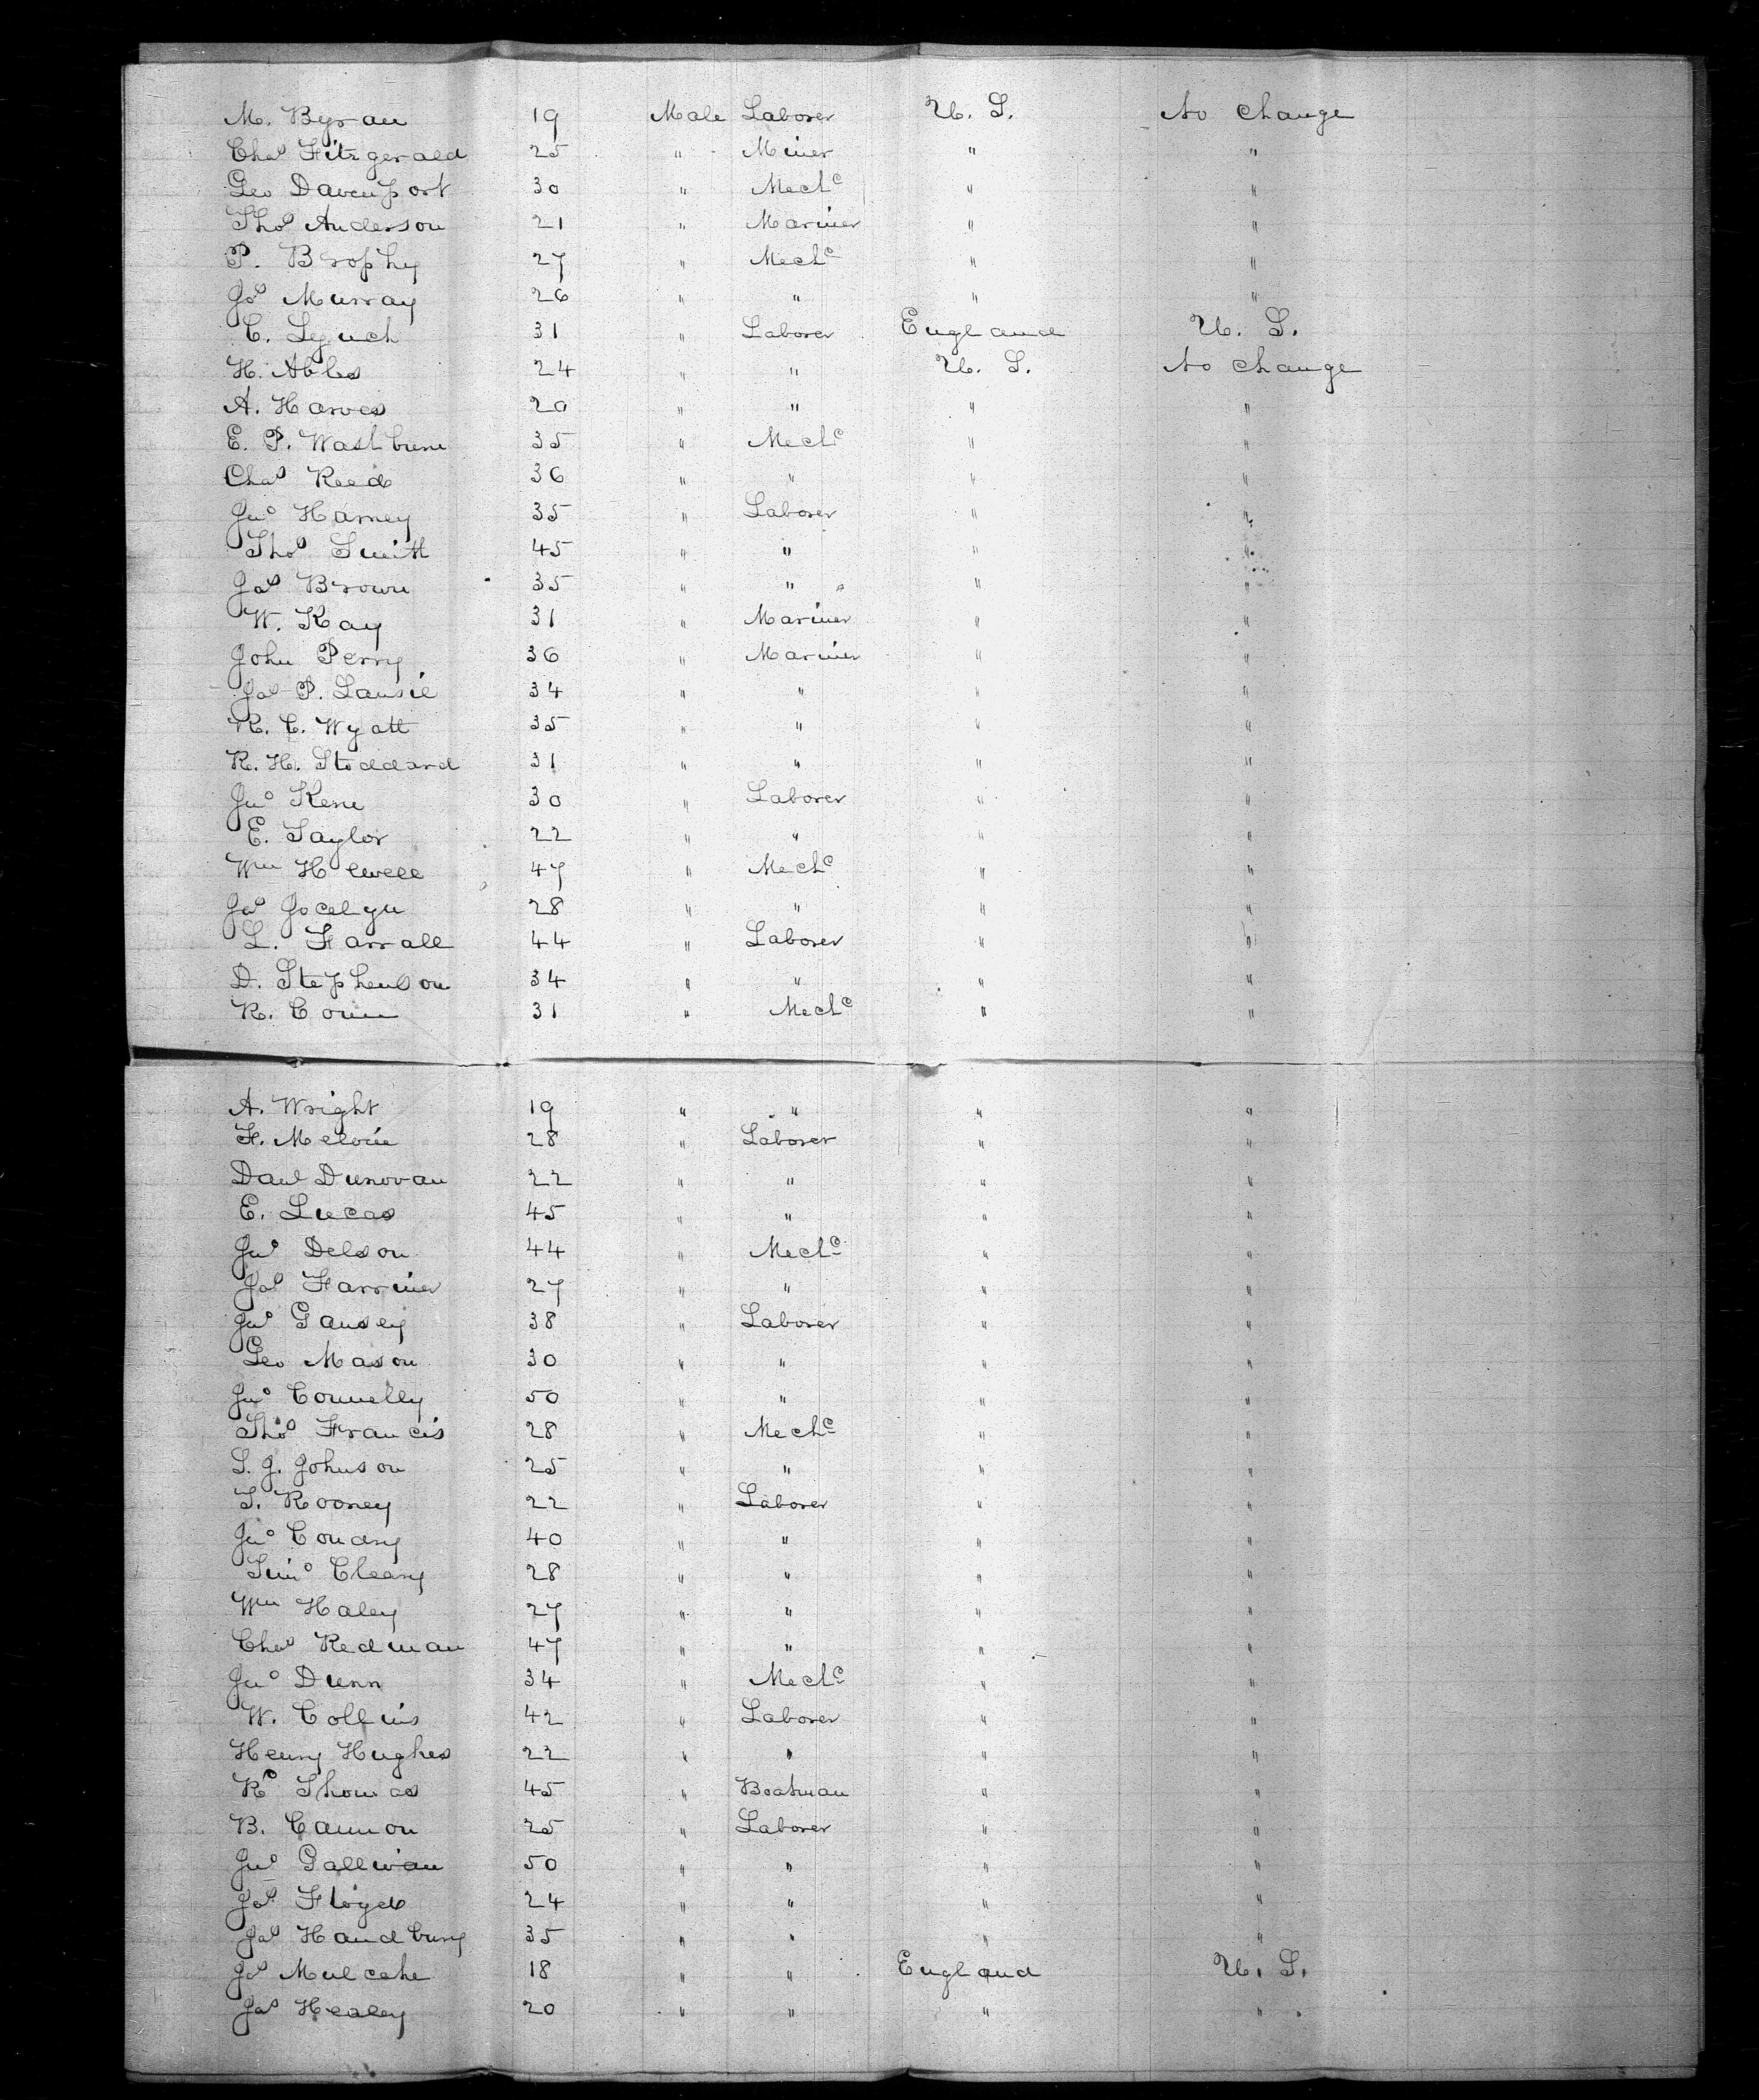 M. Byran 19 Male Laborer U. S. No Change
Chas Fitzgerald 25 " Miner " "
Geo Davenport 30 " Mechc " "
Thos Anderson 21 " Mariner " "
P. Brophy 27 " Mechc " "
Jos Murray 26 " " " "
C. Lynch 31 " Laborer England U. S.
H. Ables 24 " " U. S. No Change
A. Harves 20 " " " "
E. P. Washburn 35 " Mechc " "
Chas Reed 36 " " " "
Jno Harney 35 " Laborer " "
Thos Smith 45 " " " "
Jas Brown 35 " " " "
W. Kay 31 " Mariner " "
John Perry 36 " Mariner " "
Jas P. Lansil 34 " " " "
R. C. Wyatt 35 " " " "
R. H. Stoddard 31 " " " "
Jno Kene 30 " Laborer " "
E. Taylor 22 " " " "
Wm Hewell 47 " Mechc " "
Jas Jocelyn 28 " " " "
L. Farrall 44 " Laborer " "
D. Stephenson 34 " " " "
R. 31 " Mechc " "
A. Wright 19 " " " "
F. Melvin 28 " Laborer " "
Danl Dunovan 22 " " " "
E. Lucas 45 " " " "
Jno Delson 44 " Mechc " "
Jas Farrier 27 " " " "
Jno Gansey 38 " Laborer " "
Geo Mason 30 " " " "
Jno Connelly 50 " " " "
Thos Francis 28 " Mechc " "
S. J. Johnson 25 " " " "
T. Rooney 22 " Laborer " "
Jno Condry 40 " " " "
Simo Cleary 28 " " " "
Wm Haley 27 " " " "
Chas Redman 47 " " " "
Jno Dunn 34 " Mechc " "
W. Collins 42 " Laborer " "
Henry Hughes 22 " " " "
Ro Thomas 45 " Boatman " "
B. Cannon 25 " Laborer " "
Jno Galliwan 50 " " " "
Jos Floyd 24 " " " "
Jas Handbury 35 " " " "
Jos Mulcahe 18 " " England U. S.
Jas Healey 20 " " " "